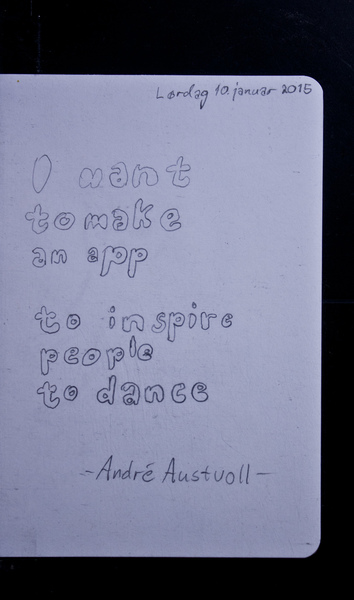 Lørdag 10. januar 2015
I want
to make
an app
to inspire
people
to dance
- André Austvoll -